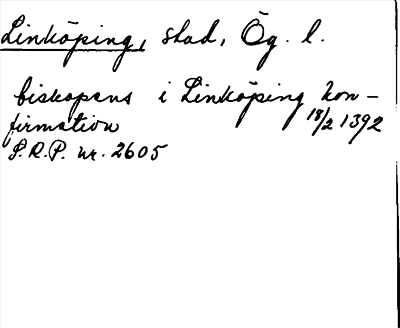 Linköping, stad, Ög. l.
biskopens i Linköping kon-
firmation 18/2 1392
S.R.P. nr. 2605